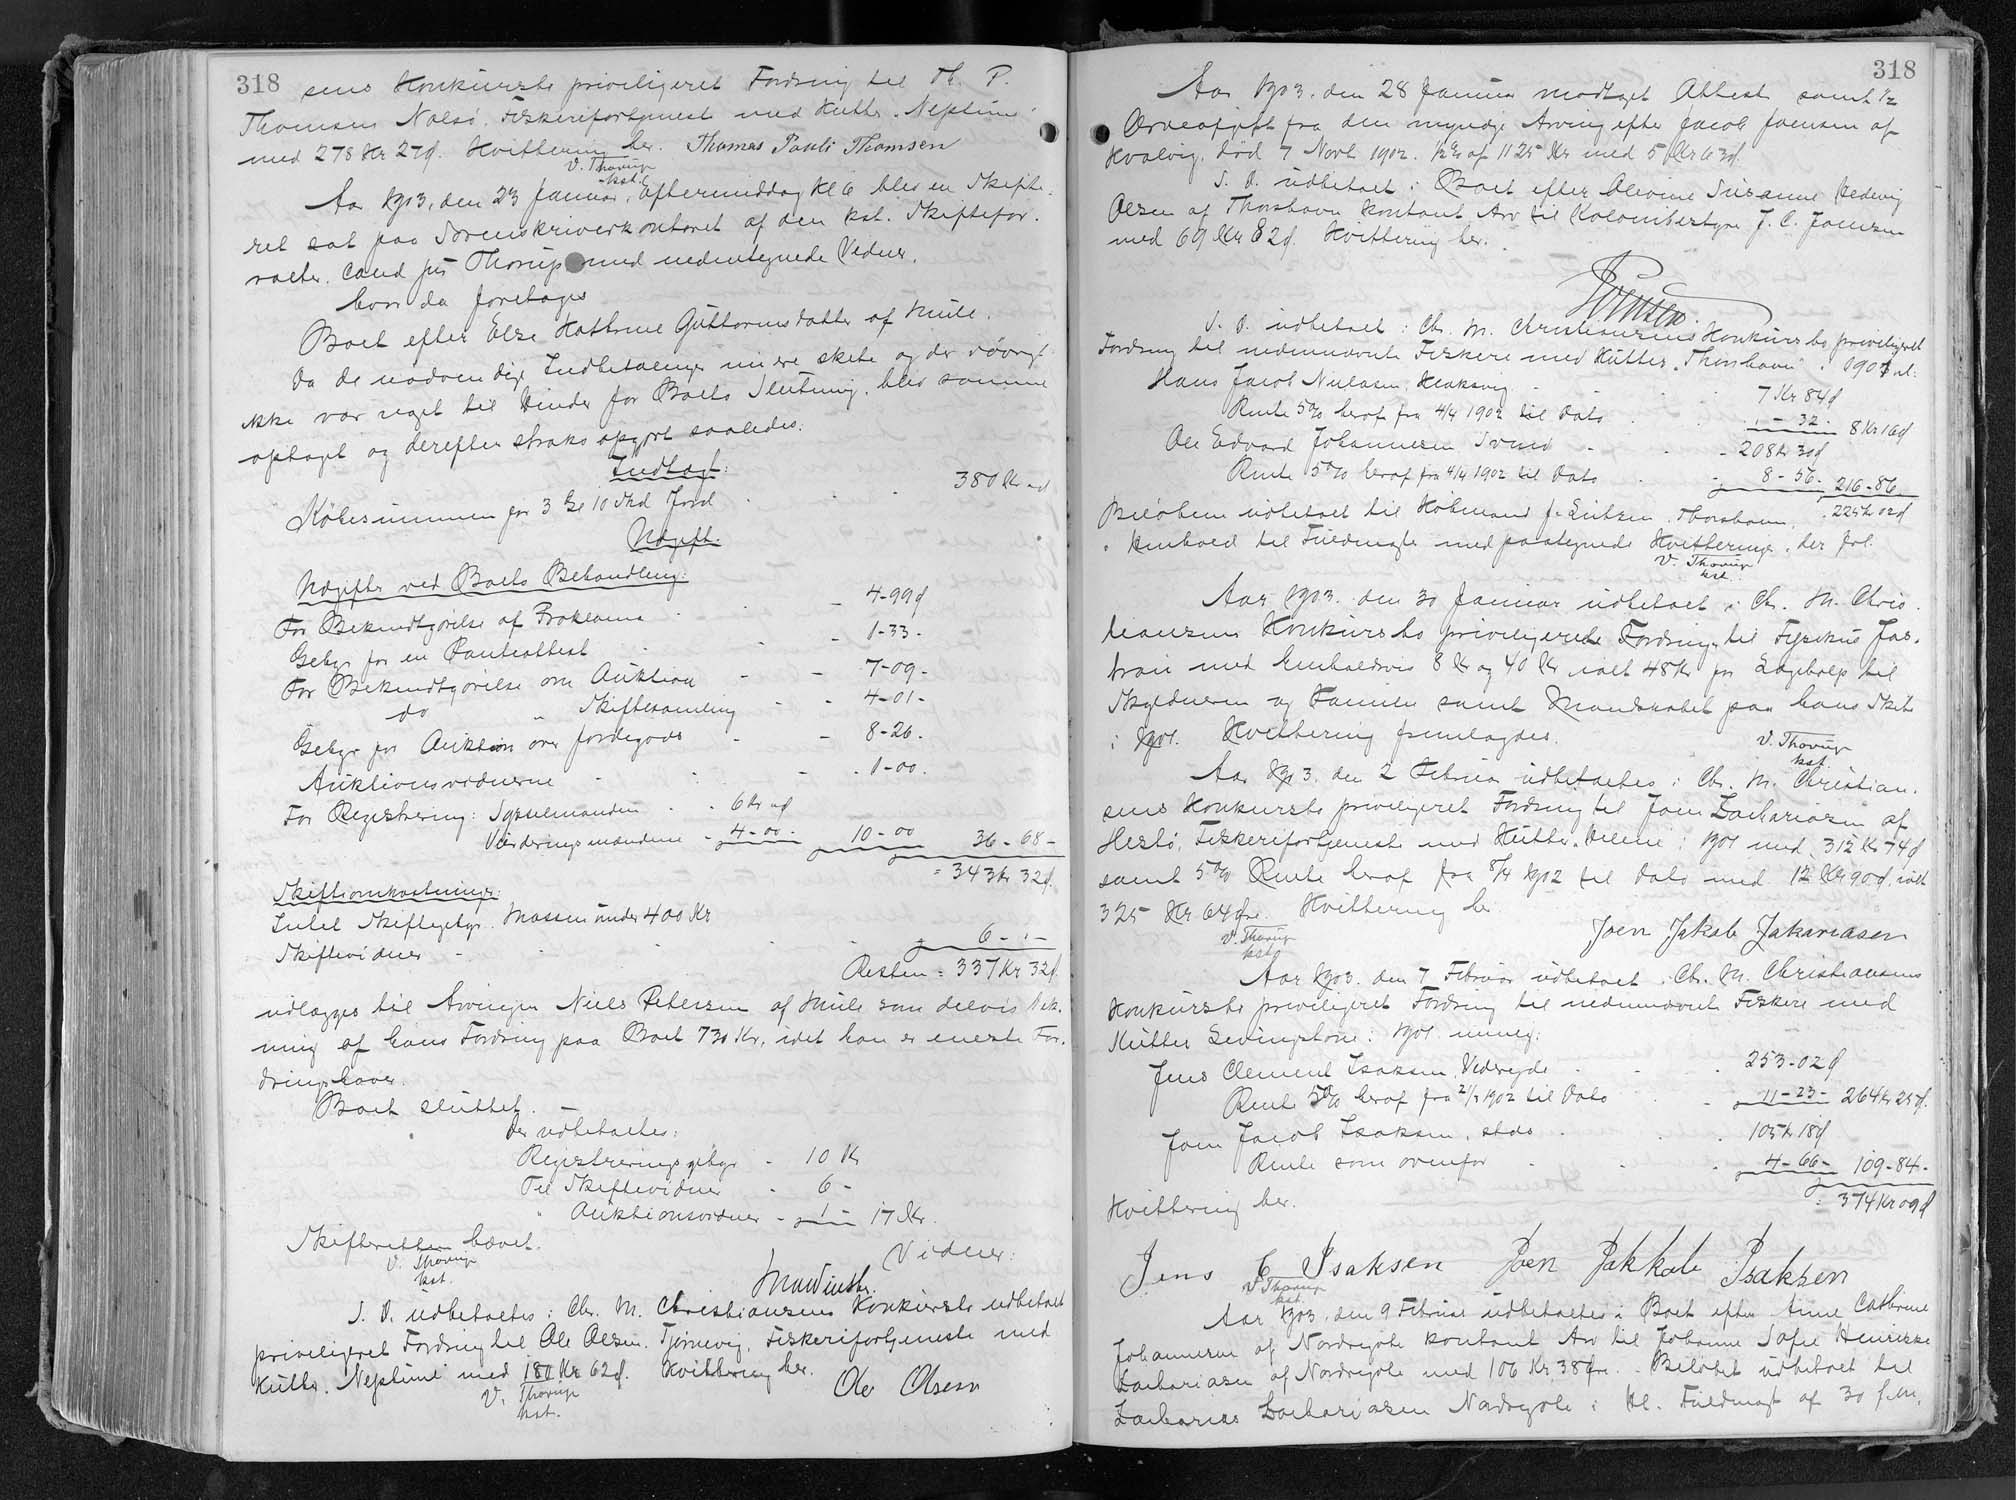 318
sens Konkursbo priviligeret Fordring til Th. P.
Thomsen Nolsö, Fiskerifortjenest med Kutter "Neptun"
med 278 Kr 27 ø. Kvittering her. Thomas Pauli Thomsen
V. Thorup
kst.
Aar 1903, den 23 Januar, Eftermiddag Kl 6 blev en Skifte-
ret sat paa Sorenskriverkontoret af den kst. Skiftefor-
valter, cand jur Thorup med nedentegnede Vidner,
hvor da foretages
Boet efter Else Kathrine Guttormsdatter af Mule.
Da de nødvendige Indbetalinger nu ere skete og der iøvrigt
ikke var noget til Hinder for Boets Slutning, blev samme
optaget og derefter straks opgjort saaledes:
Indtægt:
Købesummen for 3 Gl 10 Skd Jord - - - 380 Kr " ø
Udgift.
Udgifter ved Boets Behandling:
For Bekendtgörelse af Proklama - - - 4-99 ø
Gebyr for en Panteattest - - - 1-33 -
For Bekendtgörelse om Auktion - - 7-09 -
do " Skiftesamling - - 4-01 -
Gebyr for Auktion over Jordegods - - 8-26 -
Auktionsvidnerne - - - - 1-00 -
For Registrering: Sysselmanden - - 6 Kr " ø
Vurderingsmændene - 4-00 - 10-00 36-68 -
= 343 Kr 32 ø.
Skifteomkostninger:
Intet Skiftegebyr. Massen under 400 Kr
Skiftevidner - - - - - 6 - " -
Resten = 337 Kr 32 ø.
udlægges til Arvingen Niels Petersen af Mule som delvis Dæk-
ning af hans Fordring paa Boet 730 Kr, idet han er eneste For-
dringshaver.
Boet sluttet. -
Der udbetaltes:
Registreringsgebyr - 10 Kr
Til Skiftevidner - 6 -
" Auktionsvidner - 1 - 17 Kr.
Skifteretten hævet.
V. Thorup
kst.
Vidner:
S. D. udbetaltes i Chr. M. Christiansens Konkursbo udbetalt
priviligeret Fordring til Ole Olsen, Tjörnevig, Fiskerifortjeneste med
Kutter "Neptun" med 180 Kr 62 ø. Kvittering her.
V. Thorup
kst.
Ole Olsen
318
Aar 1903, den 28 Januar modtaget Attest samt ½
Arveafgift fra den myndige Arving efter Jacob Joensen af
Kvalvig, død 7 Novb. 1902. ½ % af 1125 Kr med 5 Kr 63 ø.
S. D. udbetalt i Boet efter Olevine Susanne Hedevig
Olsen af Thorshavn kontant Arv til Kolonibestyrer J. C. Joensen
med 69 Kr 82 ø. Kvittering her.
Joensen
S. D. udbetalt i Chr. M. Christiansens Konkursbo priviligeret
Fordring til nedennævnte Fiskere med Kutter "Thorshavn" i 1901 nl:
Hans Jacob Nielsen, Klaksvig - - - 7 Kr 84 ø
Rente 5% heraf fra 4/4 1902 til Dato - - " - 32 - 8 Kr 16 ø
Ole Edvard Johannesen Svinø - - - 208 Kr 30 ø
Rente 5% heraf fra 4/4 1902 til Dato - - 8-56 - 216-86
225 Kr 02 ø
Beløbene udbetalt til Købmand J. Lützen, Thorshavn,
i Henhold til Fuldmagt med paategnede Kvitteringer, der fol.
V. Thorup
kst.
Aar 1903, den 30 Januar udbetalt i Chr. M. Chris-
tiansens Konkursbo priviligerede Fordringer til Fysikus
med henholdsvis 8 Kr og 40 Kr, ialt 48 Kr for Lægehjælp til
Skyldneren og Familie samt Mandskabet paa hans Skibe
i 1901. Kvittering fremlagdes.
V. Thorup
kst.
Aar 1903, den 2 Februar udbetaltes i Chr. M. Christian-
sens Konkursbo priviligeret Fordring til Joen Zachariasen af
Hestö, Fiskerifortjeneste med Kutter i 1901 med 312 Kr 74 ø
samt 5% Rente heraf fra 8/4 1902 til Dato med 12 Kr 90 ø, ialt
325 Kr 64 Øre. Kvittering her
V. Thorup
kst.
Joen Jakob Jakariasen
Aar 1903, den 7 Februar udbetalt i Chr. M. Christiansens
Konkursbo priviligeret Fordring til nedennævnte Fiskere med
Kutter Livingstone i 1901 nemlig:
Jens Clement Isaksen, Viderejde - - - 253-02 ø
Rente 5% heraf fra til Dato - - 11-23 - 264 Kr 25 ø.
Joen Jacob Isaksen, stds - - - 105 Kr 18 ø
Rente som ovenfor - - - 4-66 - 109-84 -
= 374 Kr 09 ø
Kvittering her.
Jens C Isaksen Joen Jakkob Isaksen
V. Thorup
kst.
Aar 1903, den 9 Februar udbetaltes i Boet efter Anne Cathrine
Johannesen af Nordregöte kontant Arv til Johanne Sofie Henrikke
Zachariasen af Nordregöte med 106 Kr 38 Øre. - Beløbet udbetalt til
Zacharias Zachariasen Nordregöte i Hl. Fuldmagt af 30 f. M.